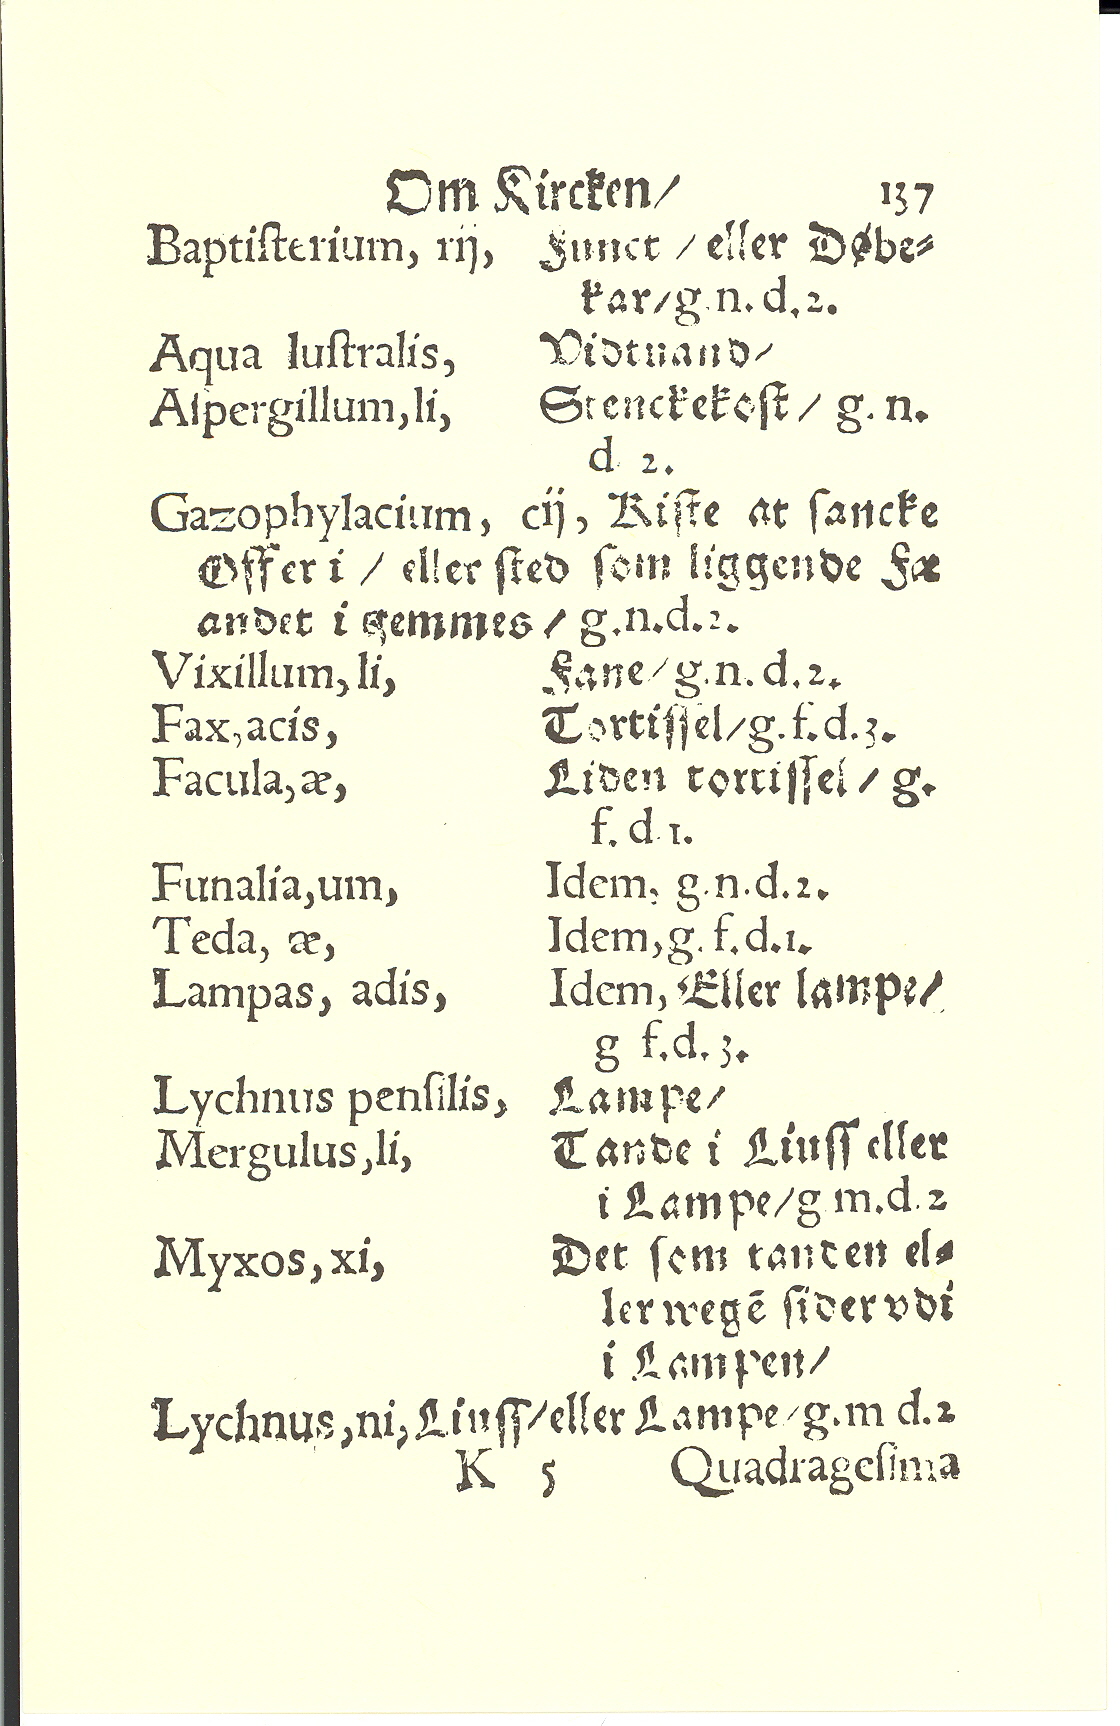 Om Kircken/ 137
Baptiſterium, rij, Funct / eller Døbe⸗
kar/g.n.d.2.
Aqua luſtralis, Vidtuand/
Aſpergillum,li, Stenckekoſt/ g.n.
d 2.
Gazophylacium, cij, Kiſte at ſancke
Offer i / eller ſted ſom liggende Fæ
andet i gemmes/ g.n.d.2.
Vixillum,li, Fane/g.n.d.2.
Fax,acis, Tortiſſel/g.f.d.3.
Facula,æ, Liden tortiſſel/ g.
f.d.1.
Funalia,um, Idem, g.n.d.2.
Teda, æ, Idem,g.f.d.1.
Lampas, adis, Idem, Eller lampe/
g f.d.3.
Lychnus penſilis, Lampe/
Mergulus,li, Tande i Liuſſ eller
i Lampe/g m.d.2
Myxos,xi, Det ſom tanden el⸗
ler wegē ſider vdi
i Lampen/
Lychnus,ni,Liuſſ/eller Lampe/g.m d.2
K 5 Quadrageſima